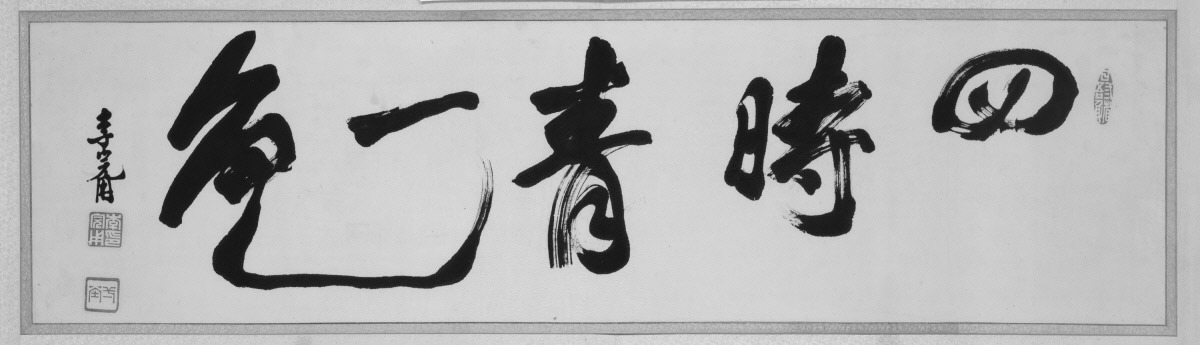 四時青一色